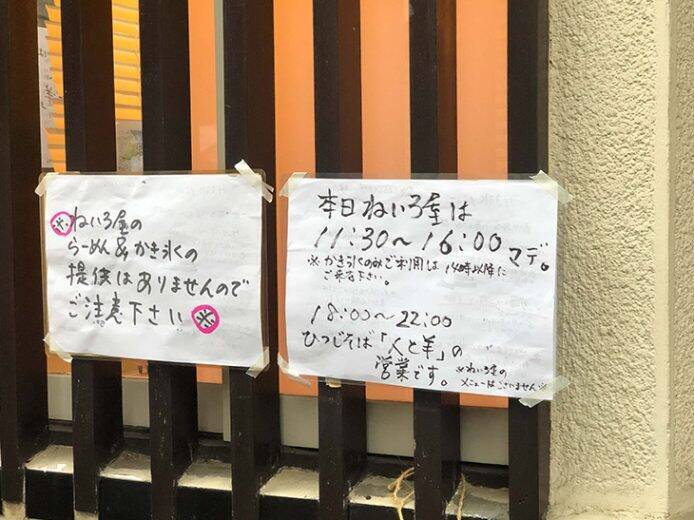 ※ ねいろ屋の
らーめん&かき氷の
提供はありませんので
ご注意下さい ※
本日ねいろ屋は
11:30〜16:00マデ。
※かき氷のみご利用は14時以降に
ご来店下さい。
18:00〜22:00
ひつじそば「人と羊」の
営業です。
※ねいろ屋の
メニューはございません※